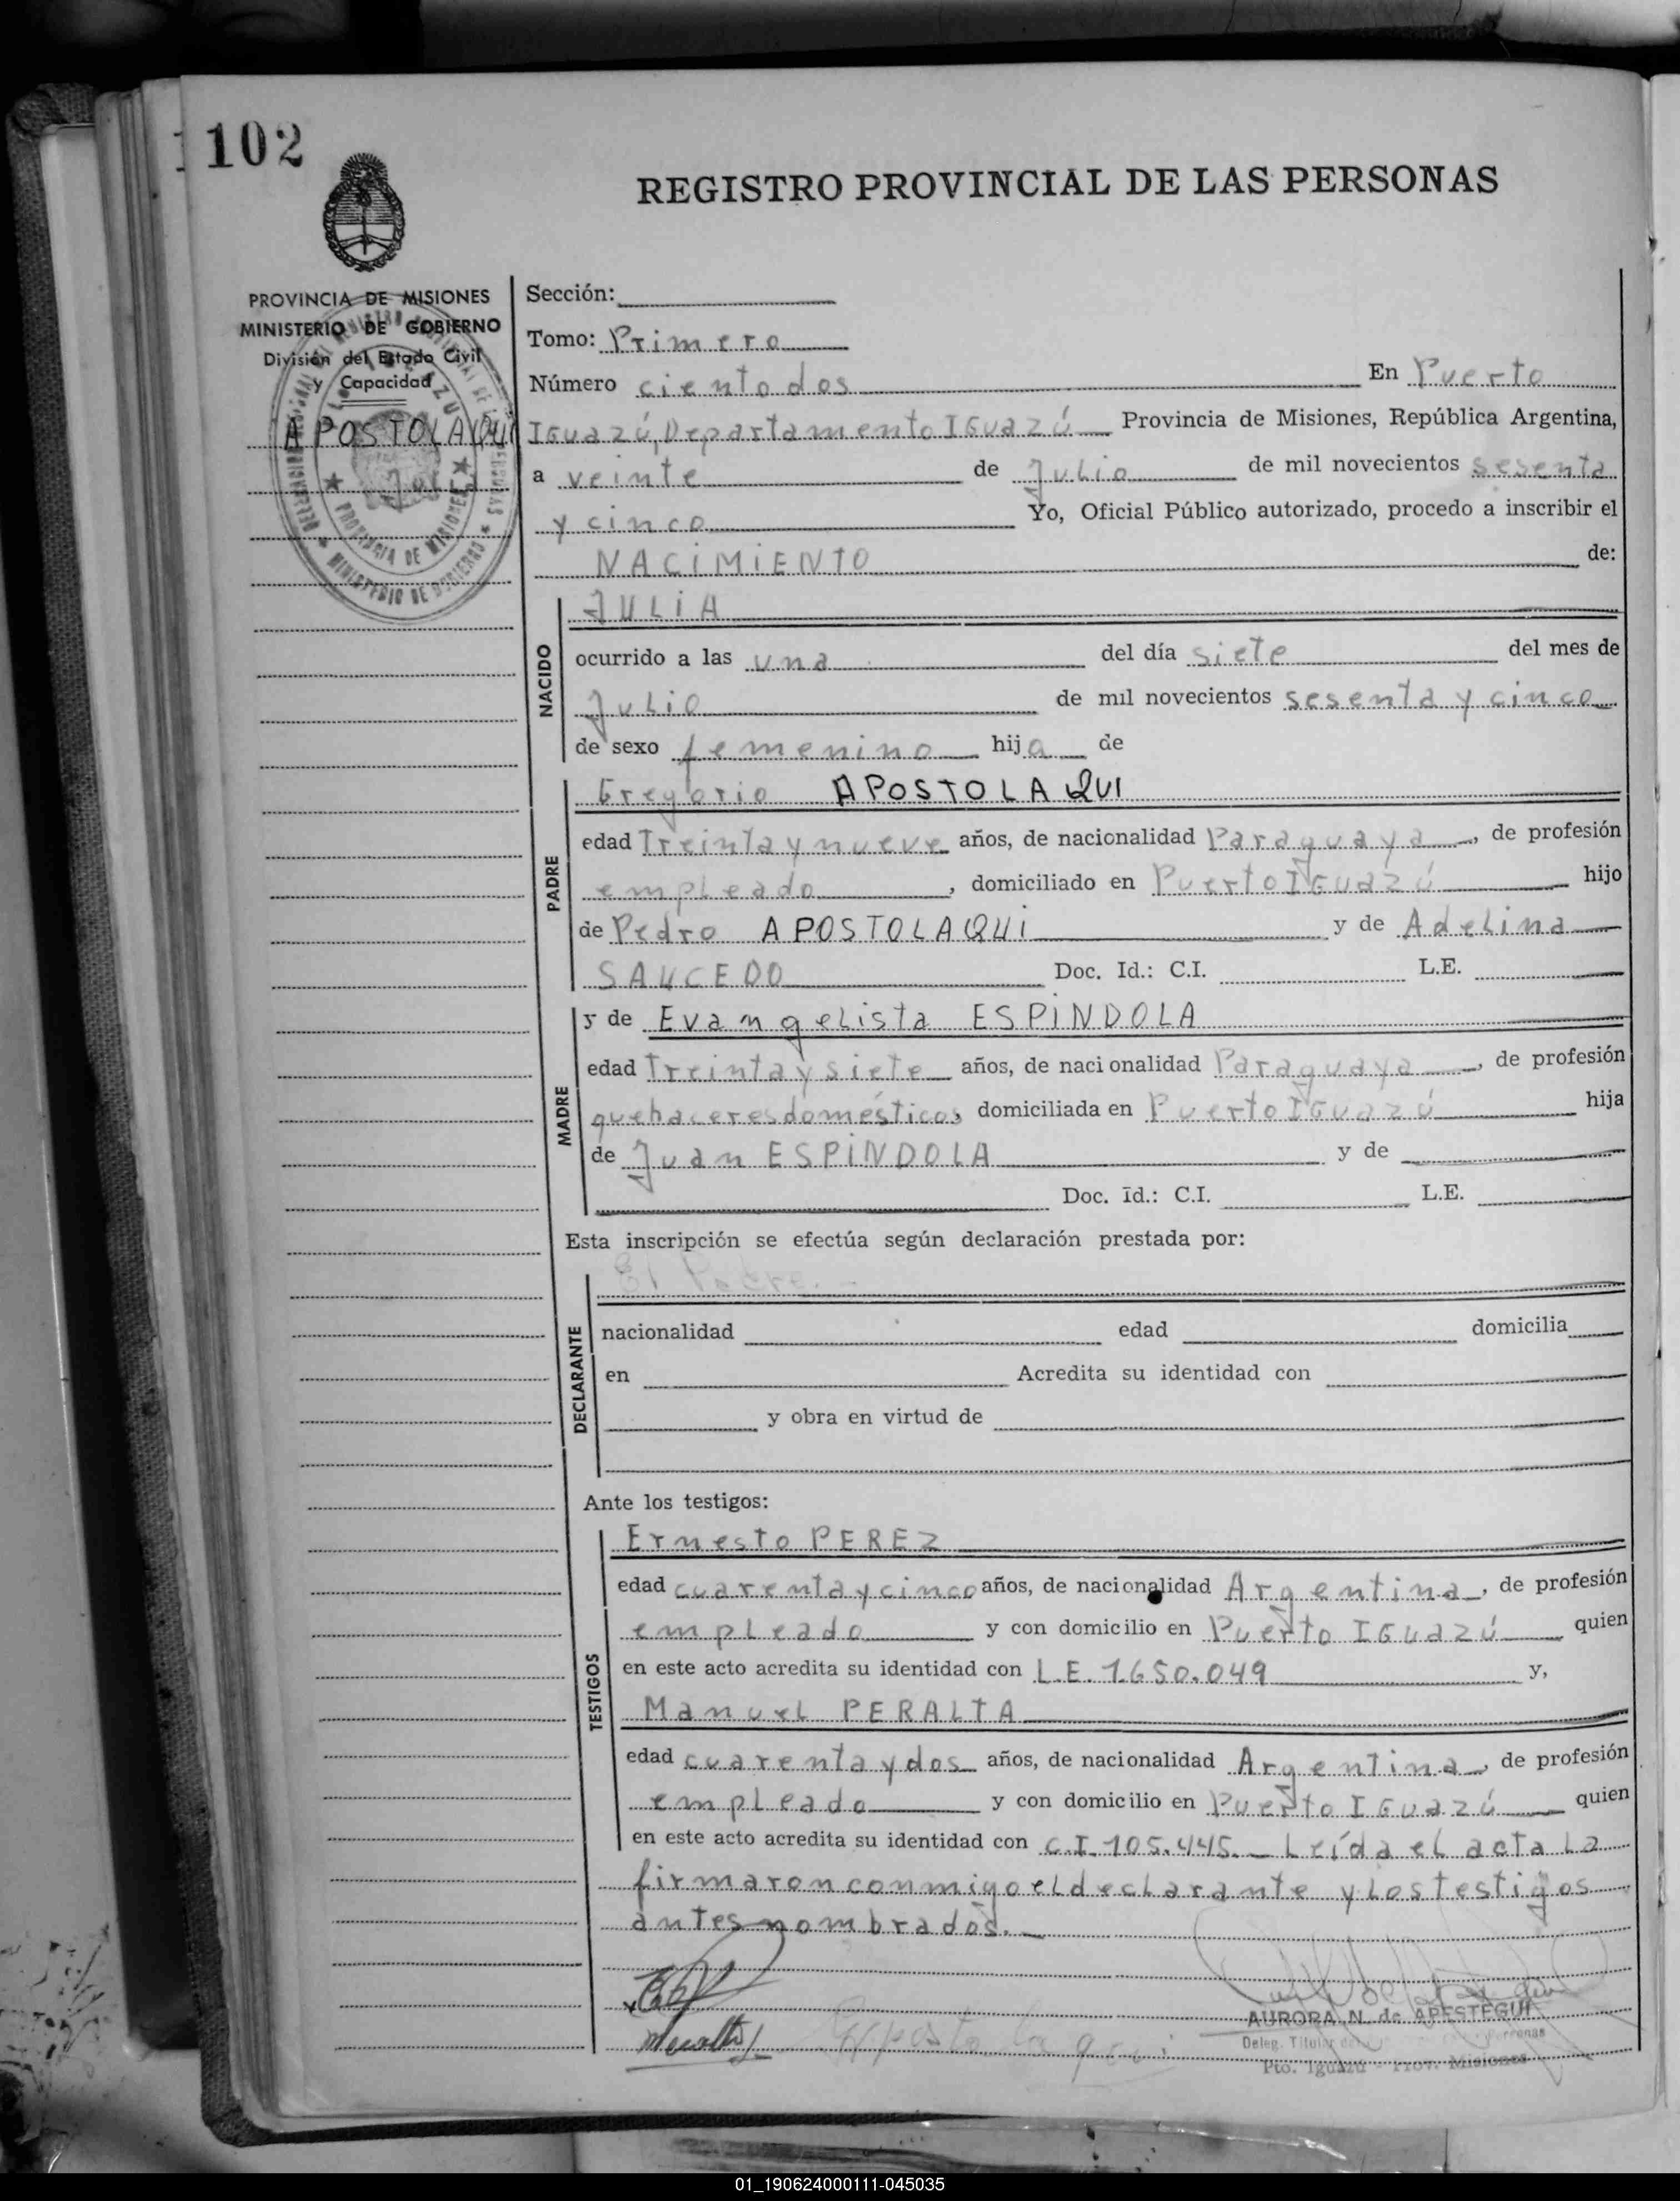 102
REGISTRO PROVINCIAL DE LAS PERSONAS
PROVINCIA DE MISIONES
MINISTERIO DE GOBIERNO
División del Estado Civil
y Capacidad
APOSTOLAQUI
Julia
PROVINCIA DE MISIONES
MINISTERIO DE GOBIERNO
Sección:
Tomo: Primero
Número ciento dos En Puerto
IGuazú, Departamento IGuazú Provincia de Misiones, República Argentina,
a veinte de Julio de mil novecientos sesenta
y cinco Yo, Oficial Público autorizado, procedo a inscribir el
NACIMIENTO de:
NACIDO
JULIA
ocurrido a las una del día siete del mes de
Julio de mil novecientos sesenta y cinco
de sexo femenino hija de
PADRE
Gregorio APOSTOLAQUI
edad Treinta y nueve años, de nacionalidad Paraguaya, de profesión
empleado, domiciliado en Puerto IGuazú hijo
de Pedro APOSTOLAQUI y de Adelina
SAUCEDO Doc. Id.: C.I. L.E.
MADRE
y de Evangelista ESPINDOLA
edad Treinta y siete años, de nacionalidad Paraguaya, de profesión
quehaceres domésticos, domiciliada en Puerto IGuazú hija
de Juan ESPINDOLA y de
Doc. Id.: C.I. L.E.
Esta inscripción se efectúa según declaración prestada por:
DECLARANTE
El Padre.-
nacionalidad edad domicilia
en Acredita su identidad con
y obra en virtud de
Ante los testigos:
TESTIGOS
Ernesto PEREZ
edad cuarenta y cinco años, de nacionalidad Argentina, de profesión
empleado y con domicilio en Puerto IGuazú quien
en este acto acredita su identidad con L.E. 1.650.049 y,
Manuel PERALTA
edad cuarenta y dos años, de nacionalidad Argentina, de profesión
empleado y con domicilio en Puerto IGuazú quien
en este acto acredita su identidad con C.I. 105.445.- Leída el acta la
firmaron conmigo el declarante y los testigos
antes nombrados.-
AURORA N. de APESTEGUI
Deleg. Titular Personas
Pto. Iguazú - Prov. Misiones
01_190624000111-045035